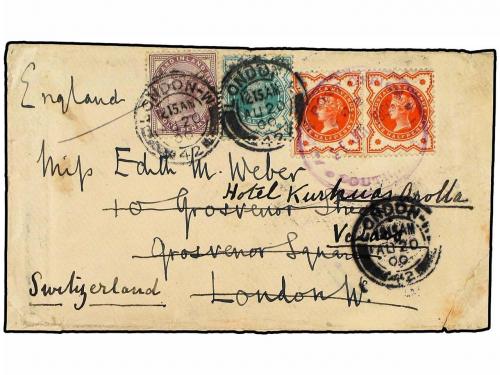 England
LONDON-W.
12.15 AM
AU 20
00
42
LONDON-W.
12.15 AM
AU 20
00
42
Miss Edith M. Weber
Hotel Kurhaus Arolla
10 Grosvenor Street
Valais
Grosvenor Square
Switzerland
London W.
LONDON-W.
12.15 AM
AU 20
00
42